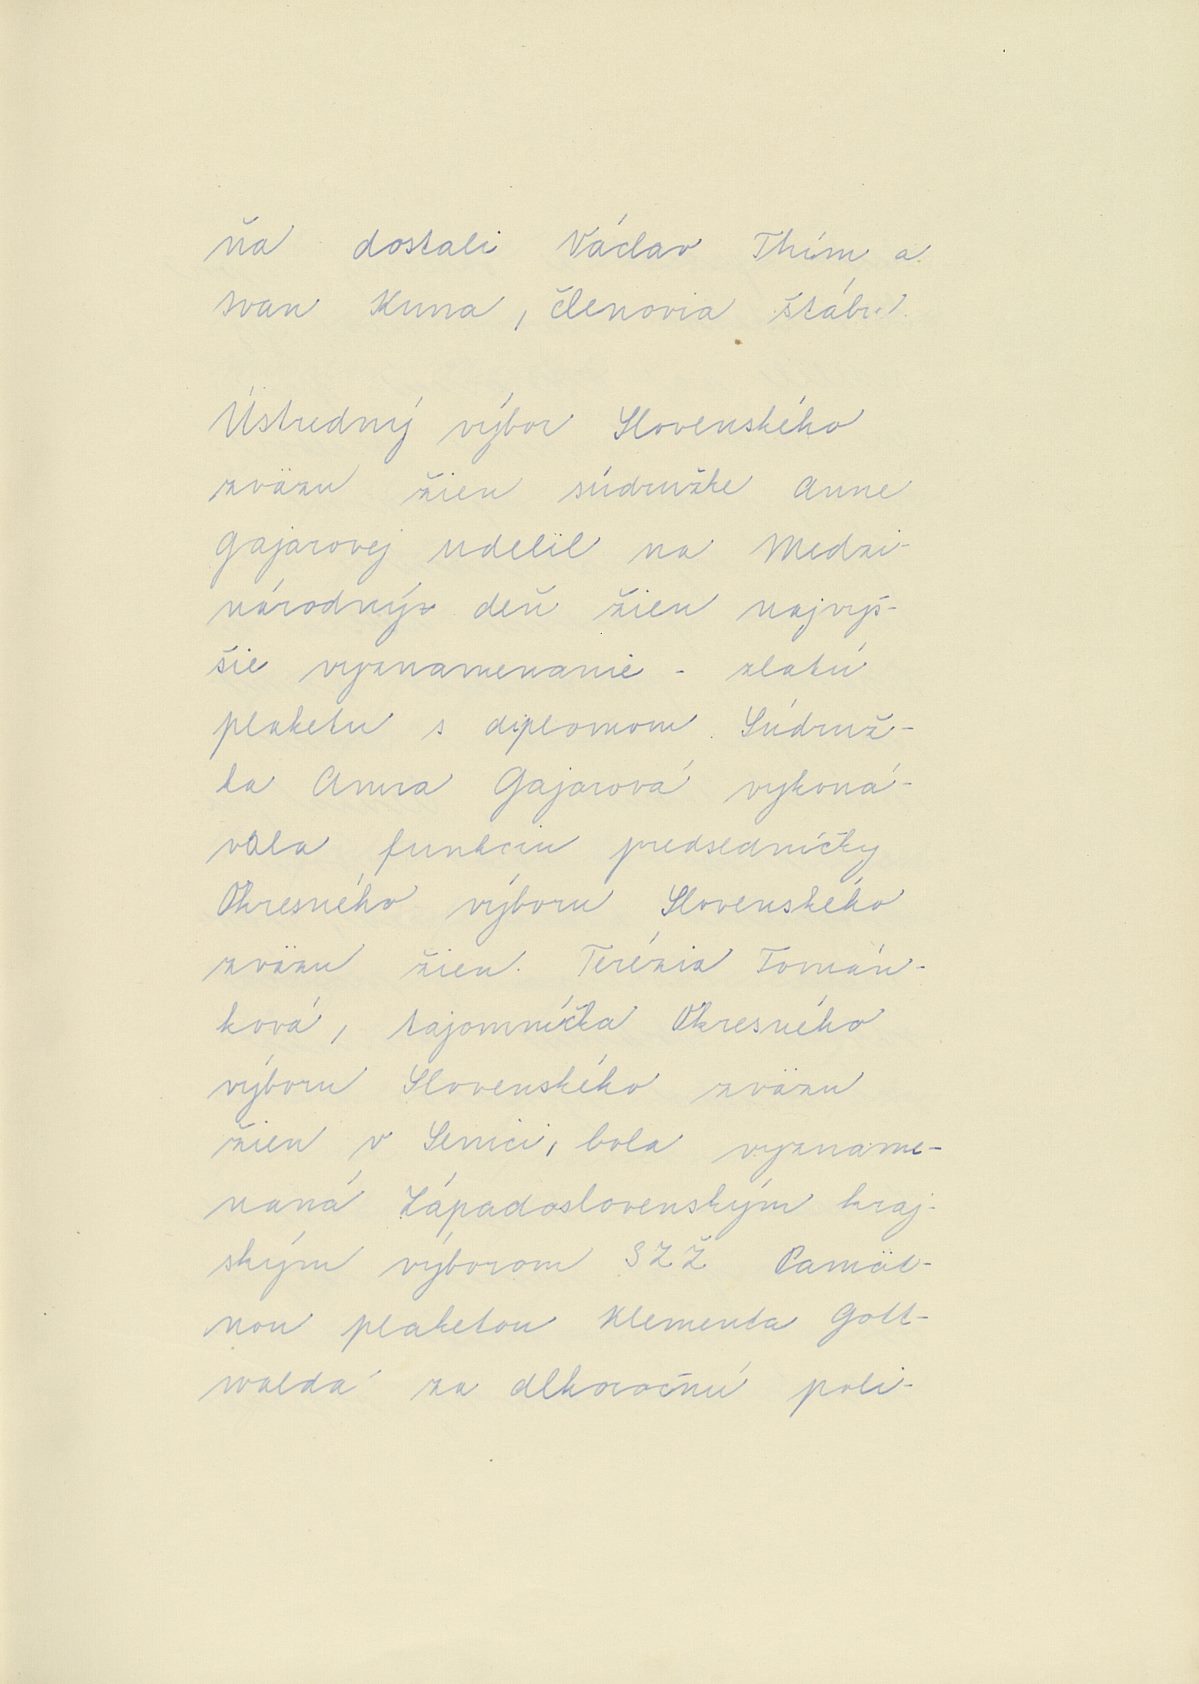 ňa dostali Václav Thím a
Ivan Kuna, členovia štábu.
Ústredný výbor Slovenského
zväzu žien súdružke Anne
Gajarovej udelil na Medzi-
národný deň žien najvyš-
šie vyznamenanie - zlatú
plaketu s diplomom. Súdruž-
ka Anna Gajarová vykoná-
vala funkciu predsedníčky
Okresného výboru Slovenského
zväzu žien. Terézia Tomán-
ková, tajomníčka Okresného
výboru Slovenského zväzu
žien v Senici, bola vyzname-
naná Západoslovenským kraj-
ským výborom SZŽ Pamät-
nou plaketou Klementa Gott-
walda za dlhoročnú poli-